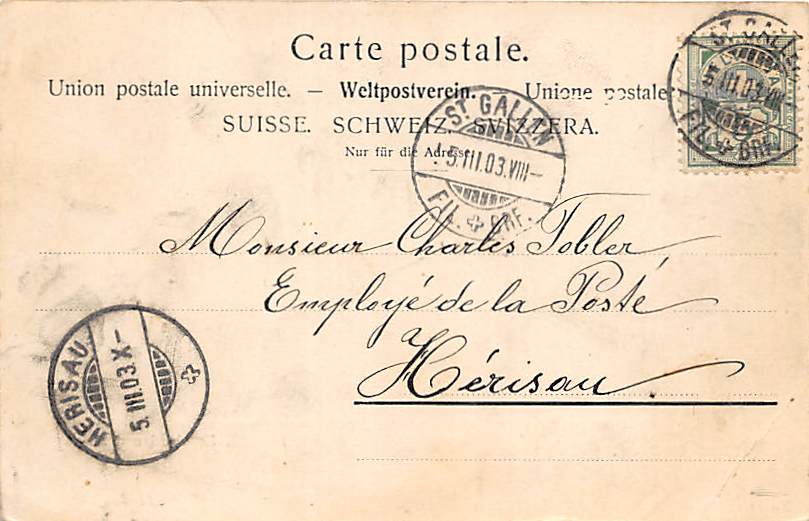 Carte postale.
Union postale universelle. — Weltpostverein. — Unione postale
SUISSE. SCHWEIZ. SVIZZERA.
Nur für die Adresse
ST. GALLEN
5.III.03.VIII—
FIL. BRF.
ST. GALLEN
5.III.03.VIII
FIL. BRF.
Monsieur Charles Tobler,
Employé de la Poste
Hérisau
HERISAU.
5.III.03.X—